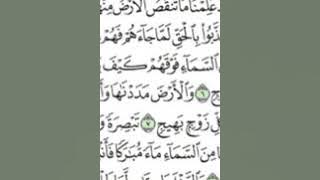 عَلِمْنَا مَا تَنقُصُ ٱلْأَرْضُ مِنْهُ
ذَّبُوا۟ بِٱلْحَقِّ لَمَّا جَآءَهُمْ فَهُمْ
ٱلسَّمَآءِ فَوْقَهُمْ كَيْفَ
جٍ ٦ وَٱلْأَرْضَ مَدَدْنَٰهَا وَأَ
لِّ زَوْجٍۭ بَهِيجٍ ٧ تَبْصِرَةً وَ
مِنَ ٱلسَّمَآءِ مَآءً مُّبَٰرَكًا فَأَن